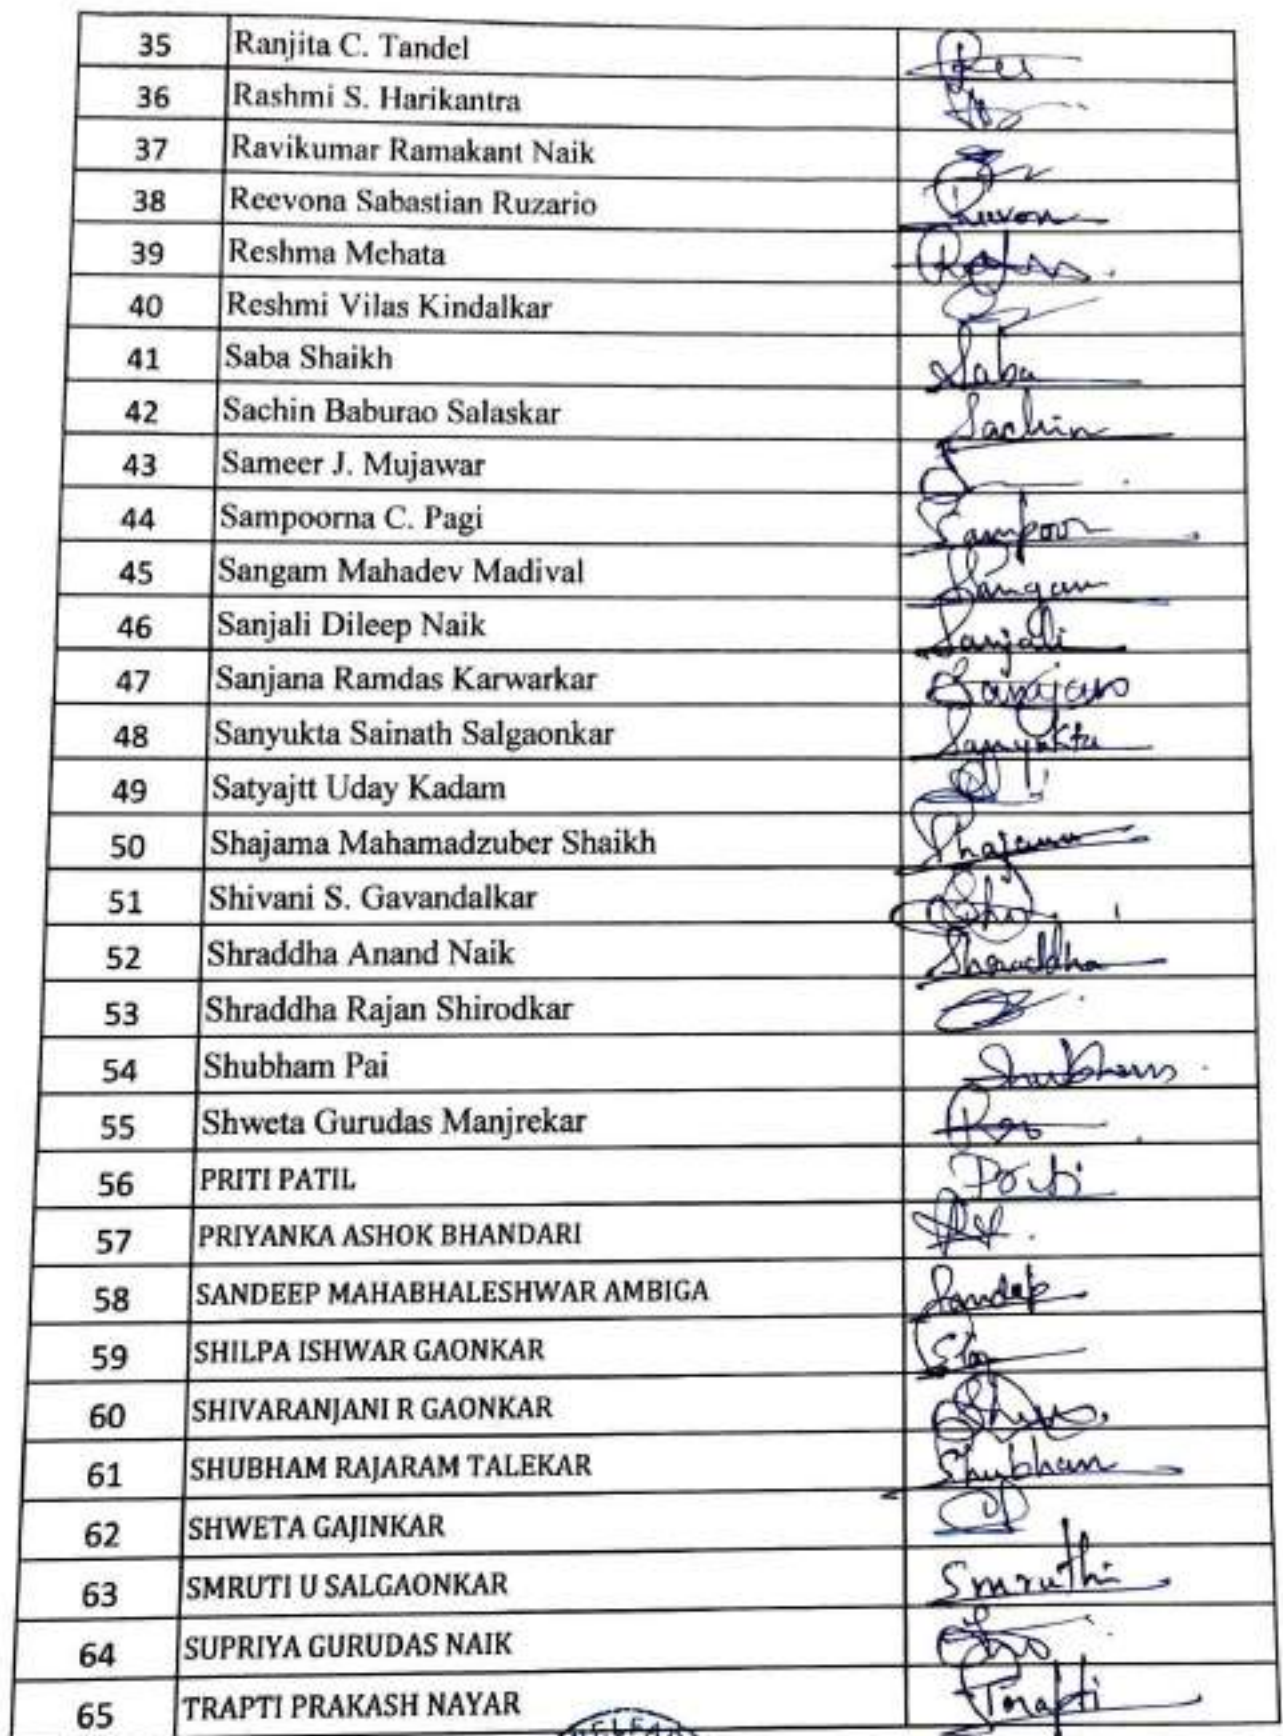 35 Ranjita C. Tandel
36 Rashmi S. Harikantra
37 Ravikumar Ramakant Naik
38 Reevona Sabastian Ruzario Reevon
39 Reshma Mehata
40 Reshmi Vilas Kindalkar
41 Saba Shaikh Saba
42 Sachin Baburao Salaskar Sachin
43 Sameer J. Mujawar
44 Sampoorna C. Pagi Sampoor
45 Sangam Mahadev Madival Sangam
46 Sanjali Dileep Naik Sanjali
47 Sanjana Ramdas Karwarkar
48 Sanyukta Sainath Salgaonkar Sanyukta
49 Satyajtt Uday Kadam
50 Shajama Mahamadzuber Shaikh Shajama
51 Shivani S. Gavandalkar
52 Shraddha Anand Naik Shraddha
53 Shraddha Rajan Shirodkar
54 Shubham Pai Shubham
55 Shweta Gurudas Manjrekar
56 PRITI PATIL Priti
57 PRIYANKA ASHOK BHANDARI
58 SANDEEP MAHABHALESHWAR AMBIGA
59 SHILPA ISHWAR GAONKAR
60 SHIVARANJANI R GAONKAR
61 SHUBHAM RAJARAM TALEKAR Shubham
62 SHWETA GAJINKAR
63 SMRUTI U SALGAONKAR Smruthi
64 SUPRIYA GURUDAS NAIK
65 TRAPTI PRAKASH NAYAR Trapti